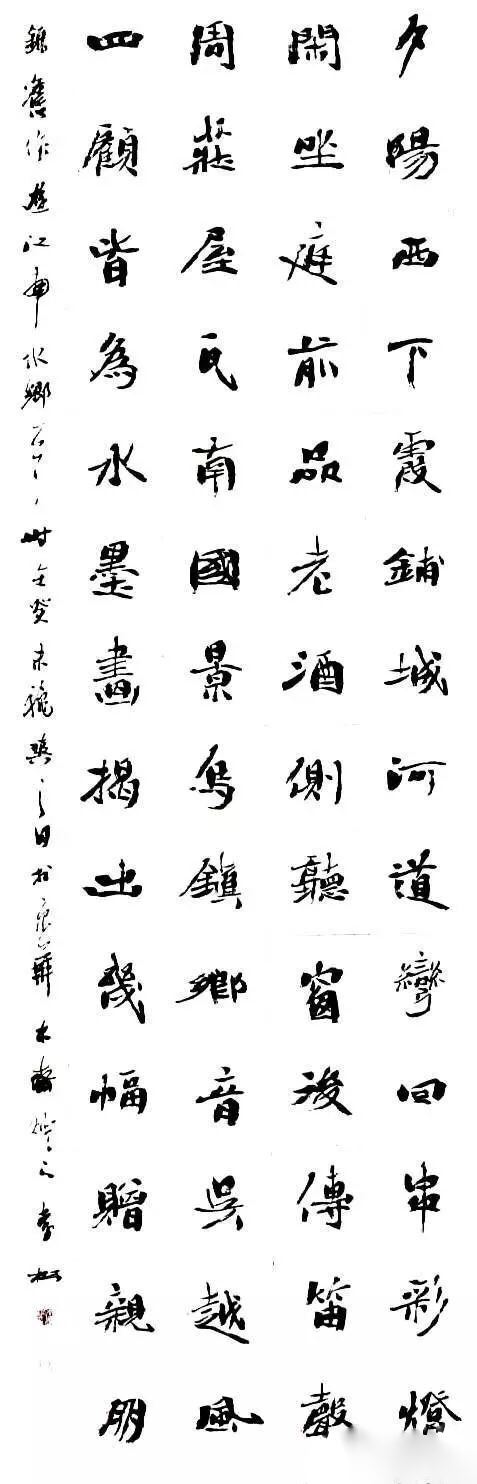 夕陽西下霞鋪城河道彎回串彩燈
閑坐庭前品老酒側聽窗後傳笛聲
周莊屋瓦南國景烏鎮鄉音吳越風
四顧皆為水墨畫揭出幾幅贈親朋
錄舊作遊江南水鄉時在癸未穐爽之日於京華木齋